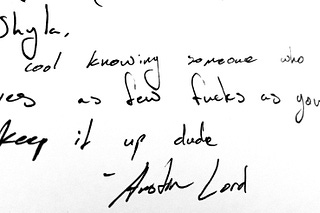 Shyla,
cool knowing someone who
as few fucks as you
keep it up dude
- Austin Lord